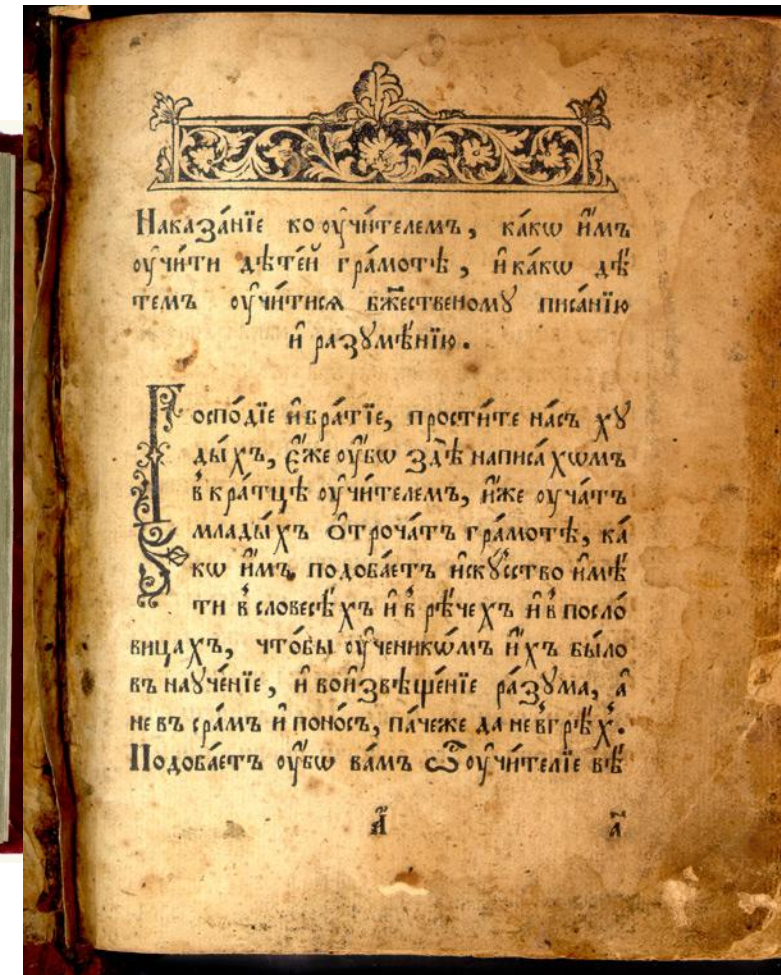 Наказа́нїе ко ᲂу҆чи́телемъ, ка́кѡ и҆̀мъ
ᲂу҆чи́ти дѣте́й гра́мотѣ, и҆ка́кѡ дѣ́
темъ ᲂу҆чи́тисѧ бж҃ественомꙋ писа́нїю
и҆ разꙋмѣ́нїю.
Госпо́дїе и҆бра́тїе, прости́те на́съ хꙋ
ды́хъ, є҆́же ᲂу҆́бѡ здѣ̀ написа́хомъ
в кра́тцѣ ᲂу҆чи́телемъ, и҆́же ᲂу҆ча́тъ
млады́хъ ѻ҆троча́тъ гра́мотѣ, ка́
кѡ и҆̀мъ подоба́етъ и҆скꙋ́сство и҆мѣ́
ти в словесѣ́хъ и҆ в рѣ́чехъ и҆ в посло́
вицахъ, что́бы ᲂу҆ченикѡ́мъ и҆́хъ бы́ло
въ наꙋче́нїе, и҆ воизвѣще́нїе ра́зꙋма, а҆̀
не въ сра́мъ и҆ поно́съ, па́чеже да не вгрѣ́х.
Подоба́етъ ᲂу҆́бѡ ва́мъ ѽ ᲂу҆чи́телїе вѣ́
а҃
а҃